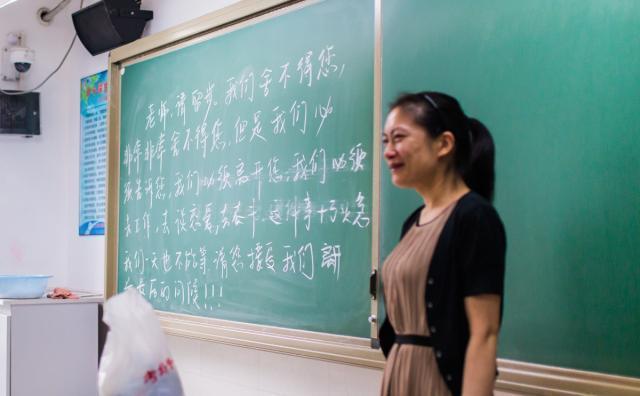 老师,请留步。我们舍不得您,
非常非常舍不得您,但是我们必
须告诉您,我们必须离开您,我们必须
去工作,去谈恋爱,去奋斗 这件事十分紧急
我们一天也不能等.请您接受我们
最后的问候!!!